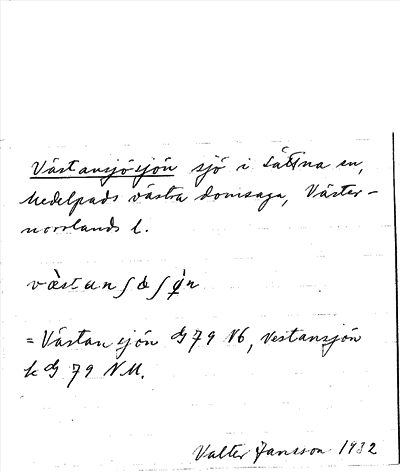 Västansjösjön sjö i Sättna sn,
Medelpads västra domsaga, Väster-
norrlands l.
væ̀stanʃøʃø̀n
= Västansjön G 79 V6, Vestansjön
k G 79 NM.
Valter Jansson 1932